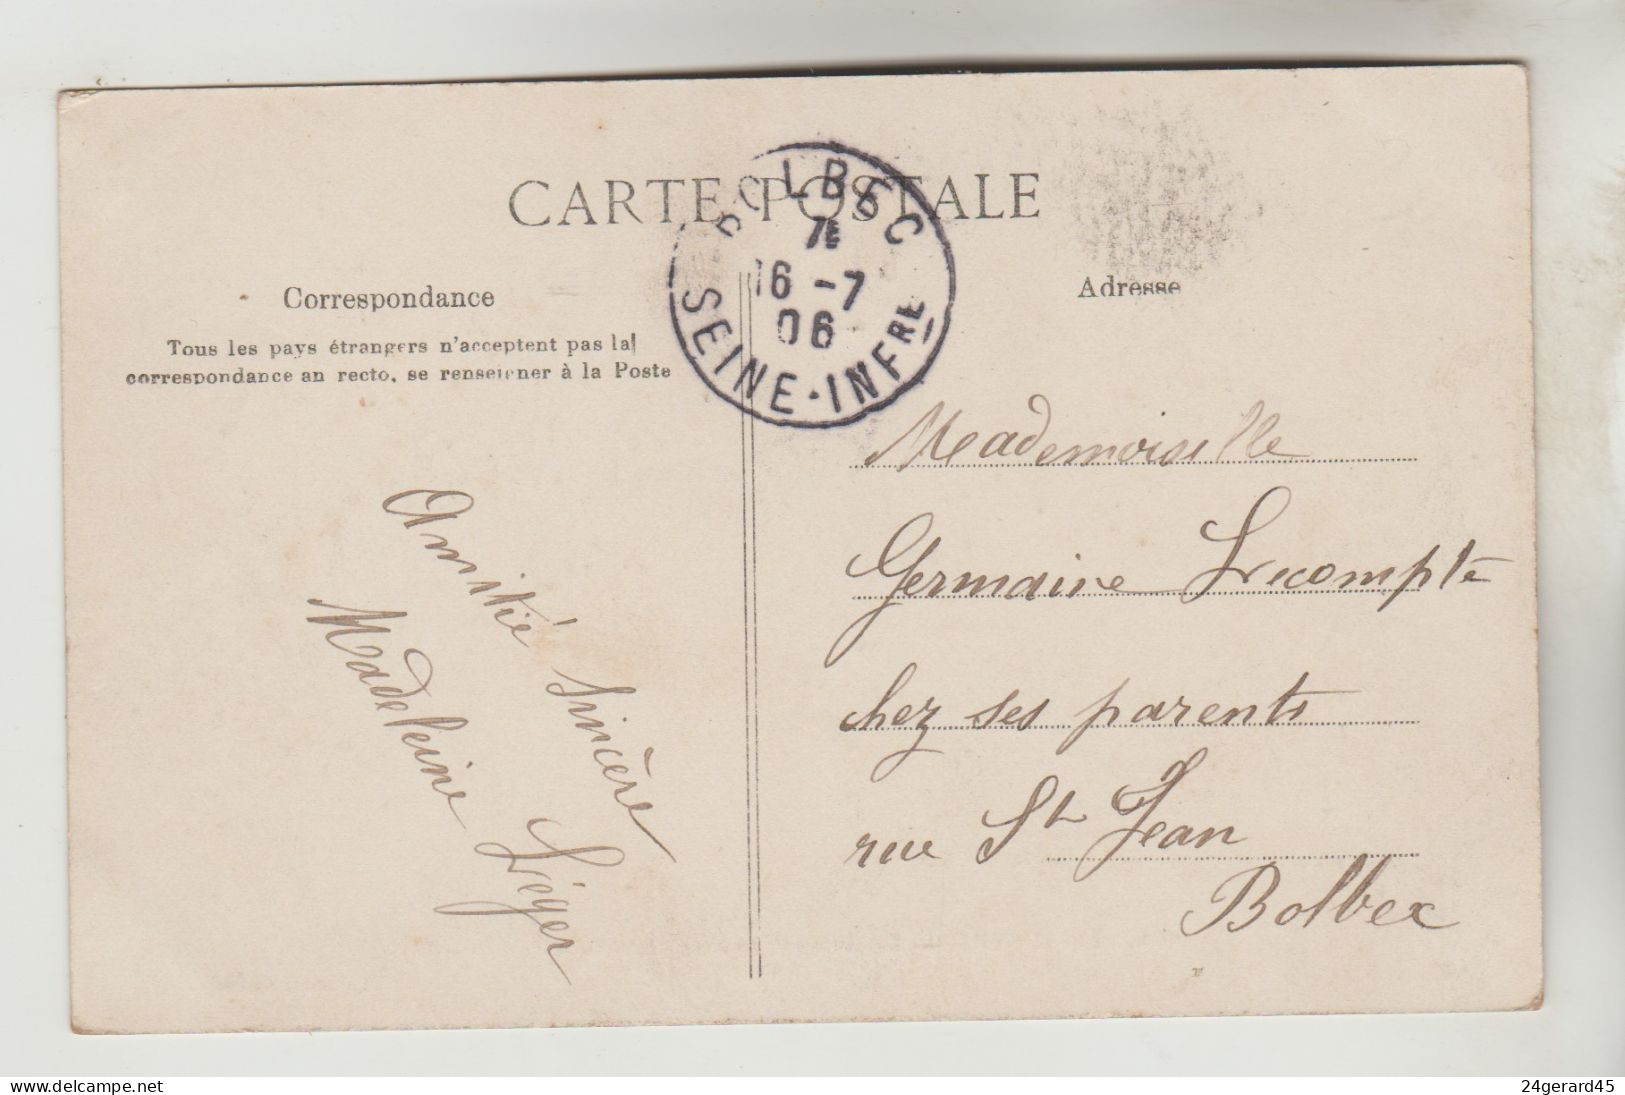 CARTE POSTALE
BOLBEC
7E
16-7
06
SEINE-INFRE
Correspondance
Tous les pays étrangers n'acceptent pas la
correspondance au recto, se renseigner à la Poste
Amitié Sincère
Madeleine Léger
Adresse
Mademoiselle
Germaine Lecompte
chez ses parents
rue St Jean
Bolbec
www.delcampe.net
24gerard45